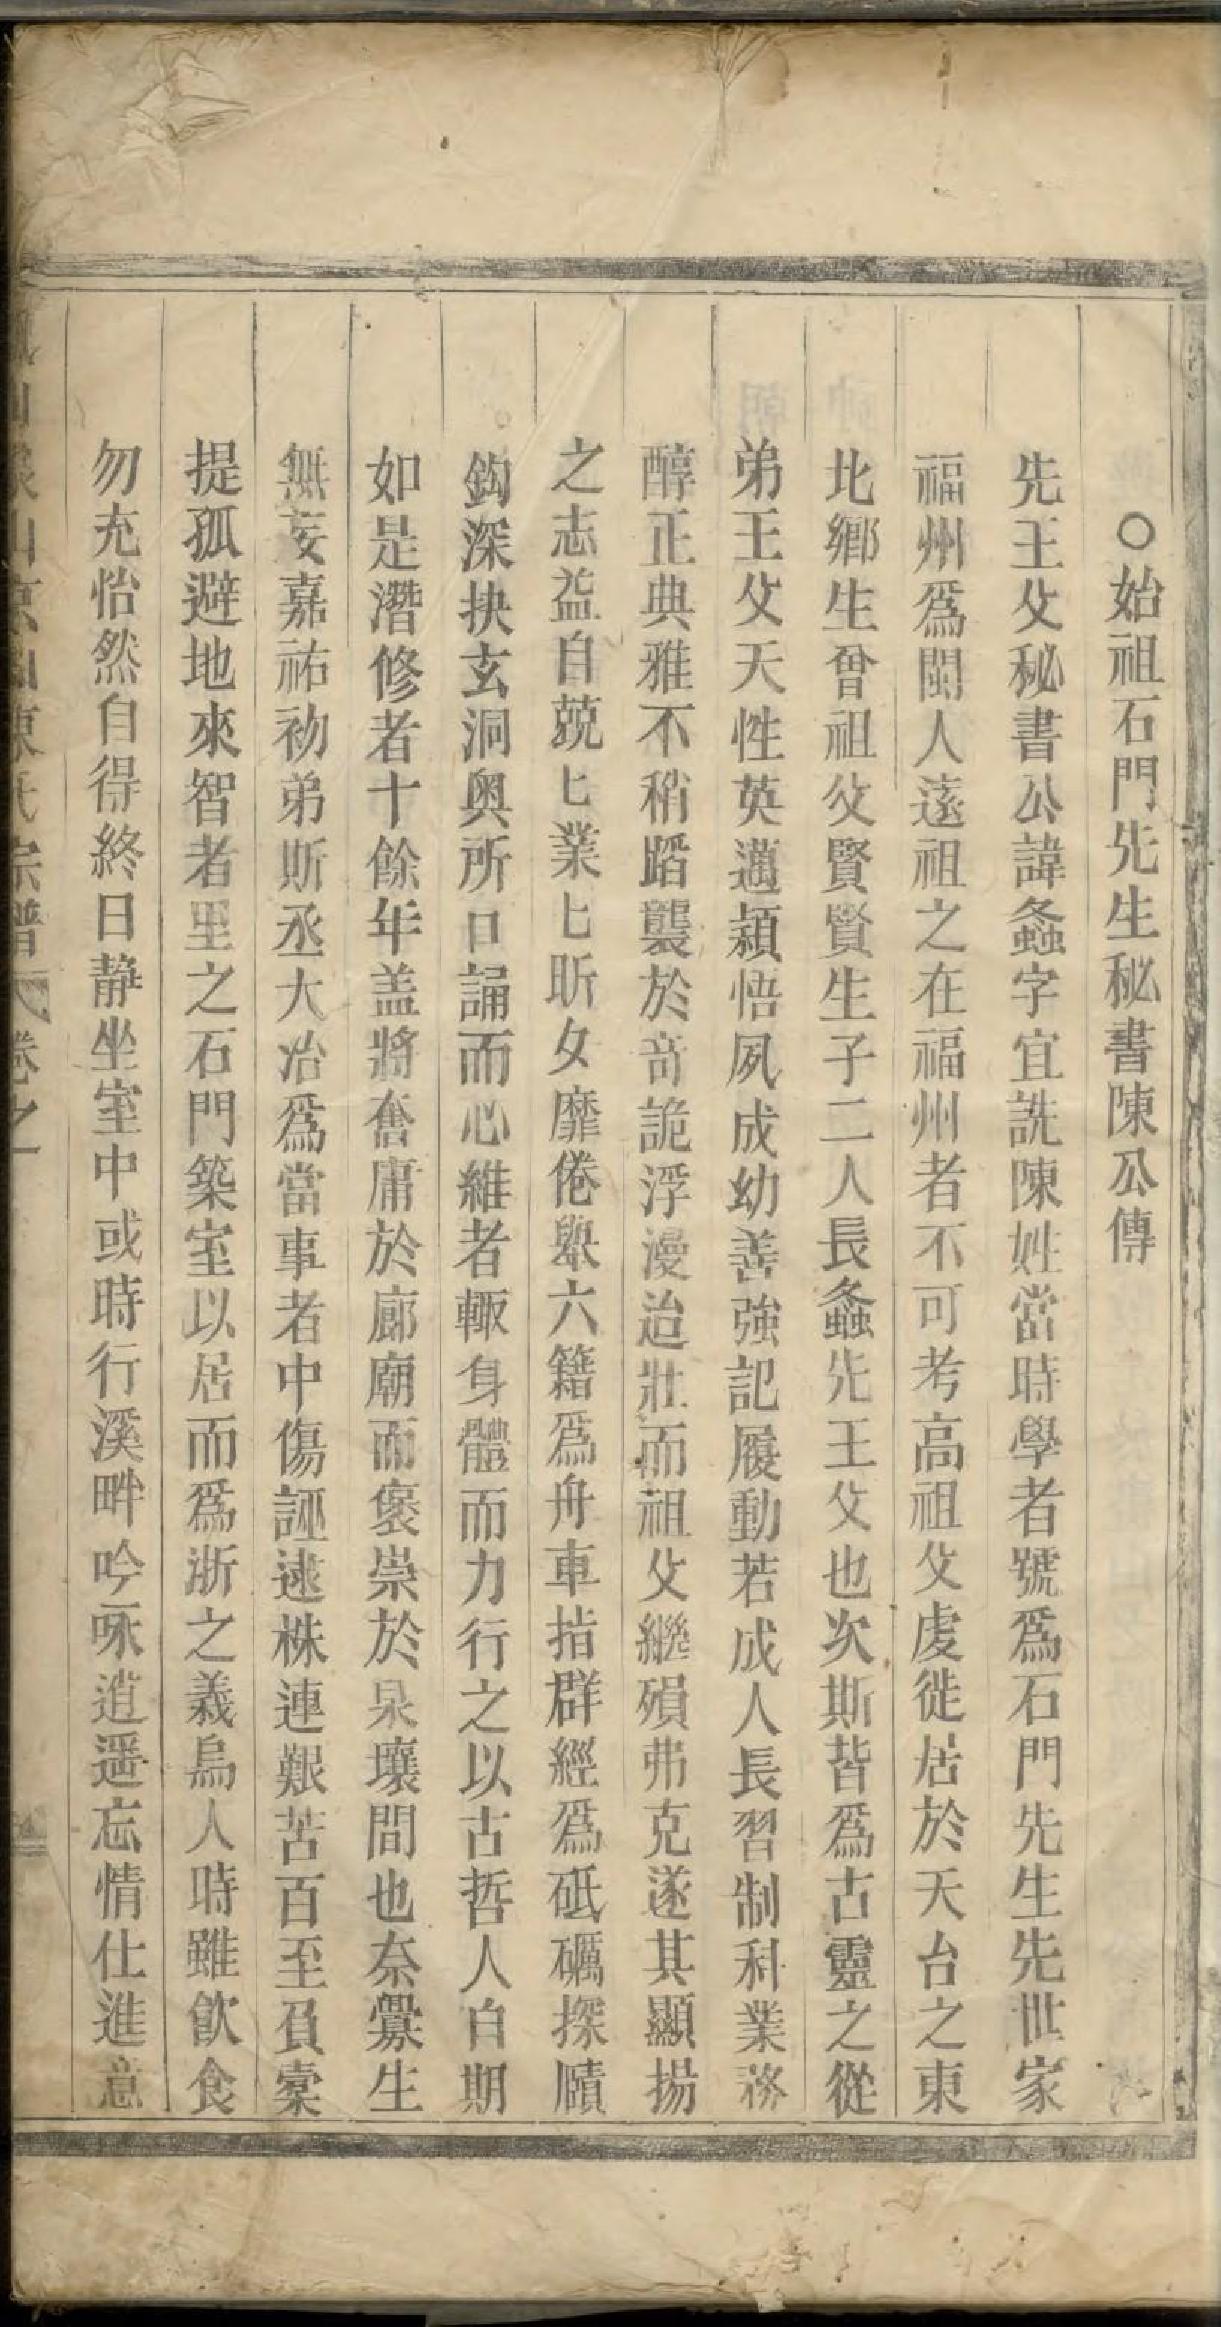 ○始祖石門先生秘書陳公傳
先王父秘書公諱螽字宜詵陳姓當時學者號爲石門先生先世家
福州爲閩人遠祖之在福州者不可考高祖父虔徙居於天台之東
北鄉生曾祖父賢賢生子二人長螽先王父也次斯皆爲古靈之從
弟王父天性英邁穎悟夙成幼善強記履動若成人長習制科業務
醇正典雅不稍蹈襲於奇詭浮漫迨壯而祖父繼殞弗克遂其顯揚
之志益自兢匕業匕昕夕靡倦㪯六籍爲舟車指群經爲砥礪探賾
鈎深抉玄洞奥所口誦而心維者輙身體而力行之以古哲人自期
如是潛修者十餘年盖將奮庸於廊廟而褒崇於泉壤間也奈釁生
無妄嘉祐初弟斯丞大冶爲當事者中傷誣逮株連艱苦百至負槖
提孤避地來智者里之石門築室以居而爲浙之義烏人時雖飲食
勿充怡然自得終日靜坐室中或時行溪畔吟咏逍遥忘情仕進意
山陳氏宗譜 卷之